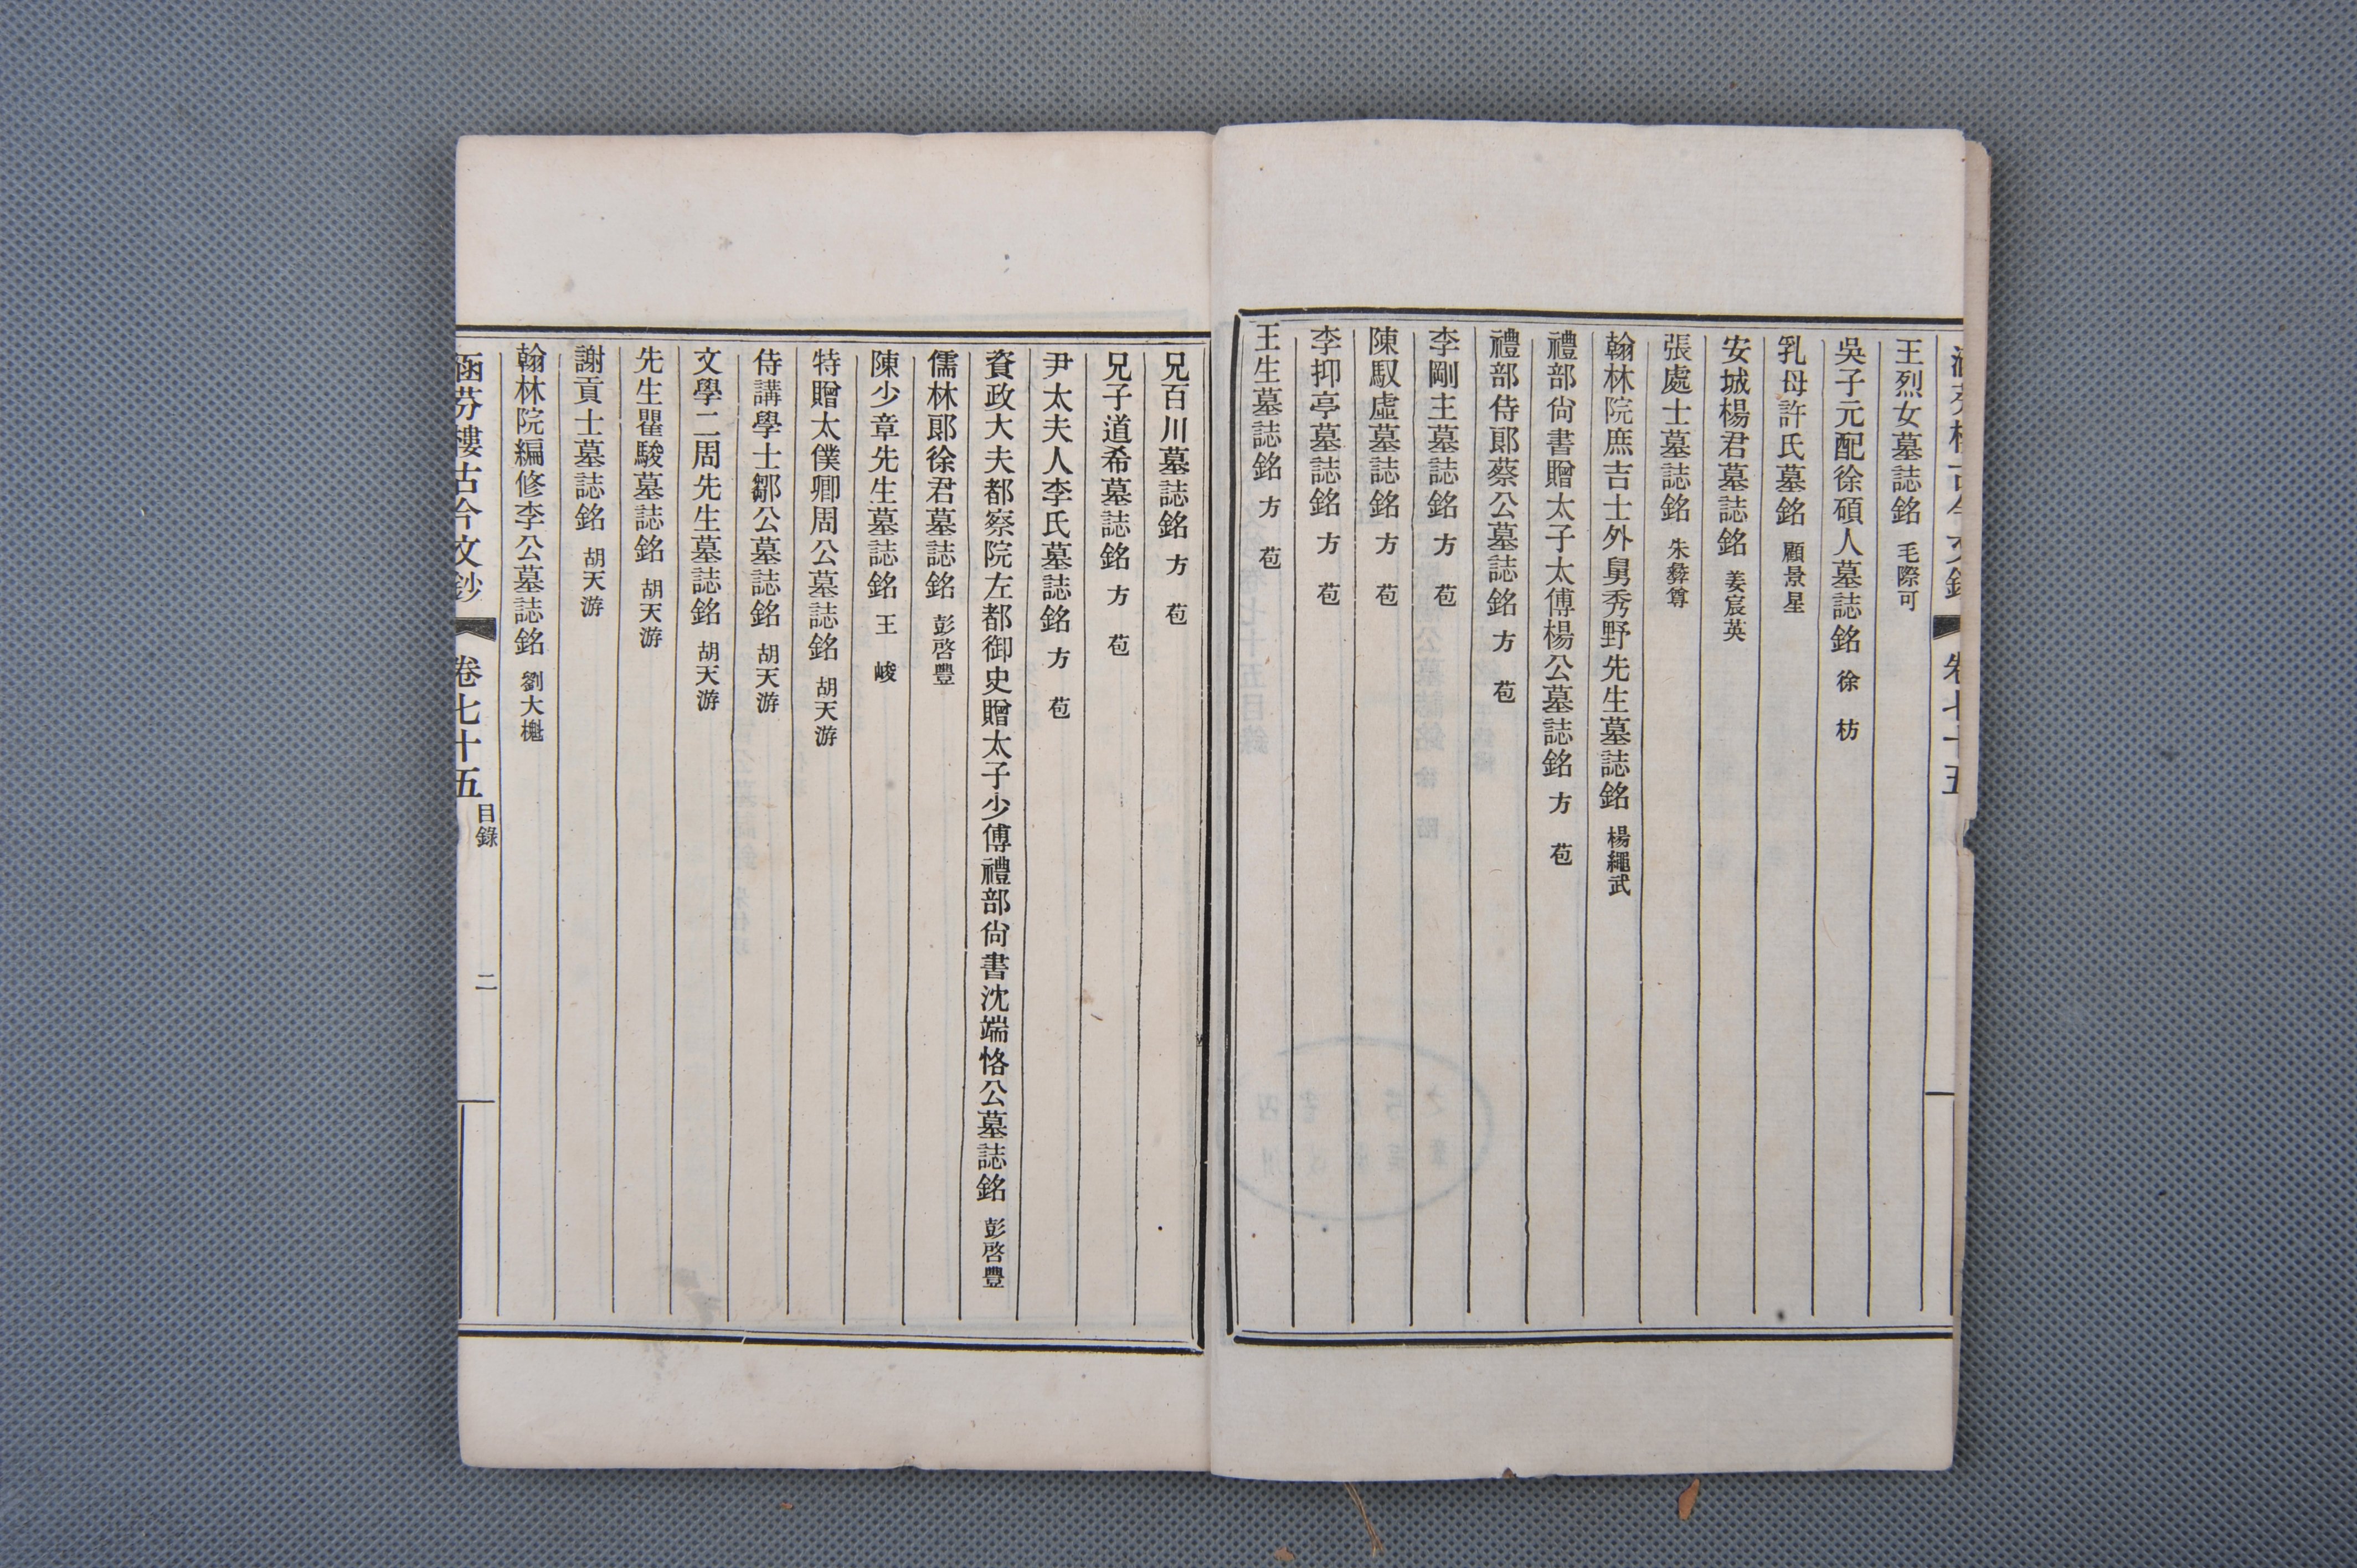 王烈女墓誌銘 毛際可
吳子元配徐碩人墓誌銘 徐枋
乳母許氏墓誌銘 顧景星
安城楊君墓誌銘 姜宸英
張處士墓誌銘 朱彝尊
翰林院庶吉士外舅秀野先生墓誌銘 楊繩武
禮部尙書贈太子太傅楊公墓誌銘 方苞
禮部侍郞蔡公墓誌銘 方苞
李剛主墓誌銘 方苞
陳馭虛墓誌銘 方苞
李抑亭墓誌銘 方苞
王生墓誌銘 方苞
兄百川墓誌銘 方苞
兄子道希墓誌銘 方苞
尹太夫人李氏墓誌銘 方苞
資政大夫都察院左都御史贈太子少傅禮部尙書沈端恪公墓誌銘 彭啓豐
儒林郞徐君墓誌銘 彭啓豐
陳少章先生墓誌銘 王峻
特贈太僕卿周公墓誌銘 胡天游
侍講學士鄒公墓誌銘 胡天游
文學二周先生墓誌銘 胡天游
先生瞿駿墓誌銘 胡天游
謝貢士墓誌銘 胡天游
翰林院編修李公墓誌銘 劉大櫆
涵芬樓古今文鈔 卷七十五 目錄 二